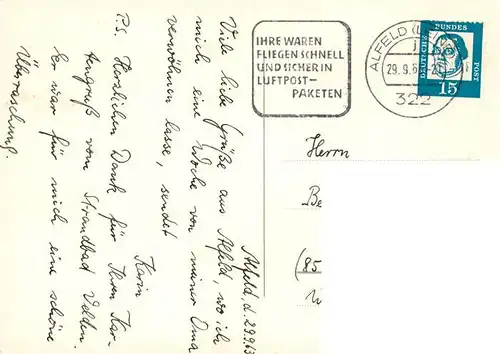 Alfeld, d. 29.9.63
Viele liebe Grüße aus Alfeld, wo ich
mich eine Woche von meiner Oma
verwöhnen lasse, sendet
Karin
P.S. Herzlichen Dank für Ihren Kar-
tengruß vom Strandbad Velden.
Er war für mich eine schöne
Überraschung.
IHRE WAREN
FLIEGEN SCHNELL
UND SICHER IN
LUFTPOST-
PAKETEN
ALFELD (L
29.9.6
322
DEUTSCHE BUNDESPOST
15
Herrn
Be
(85